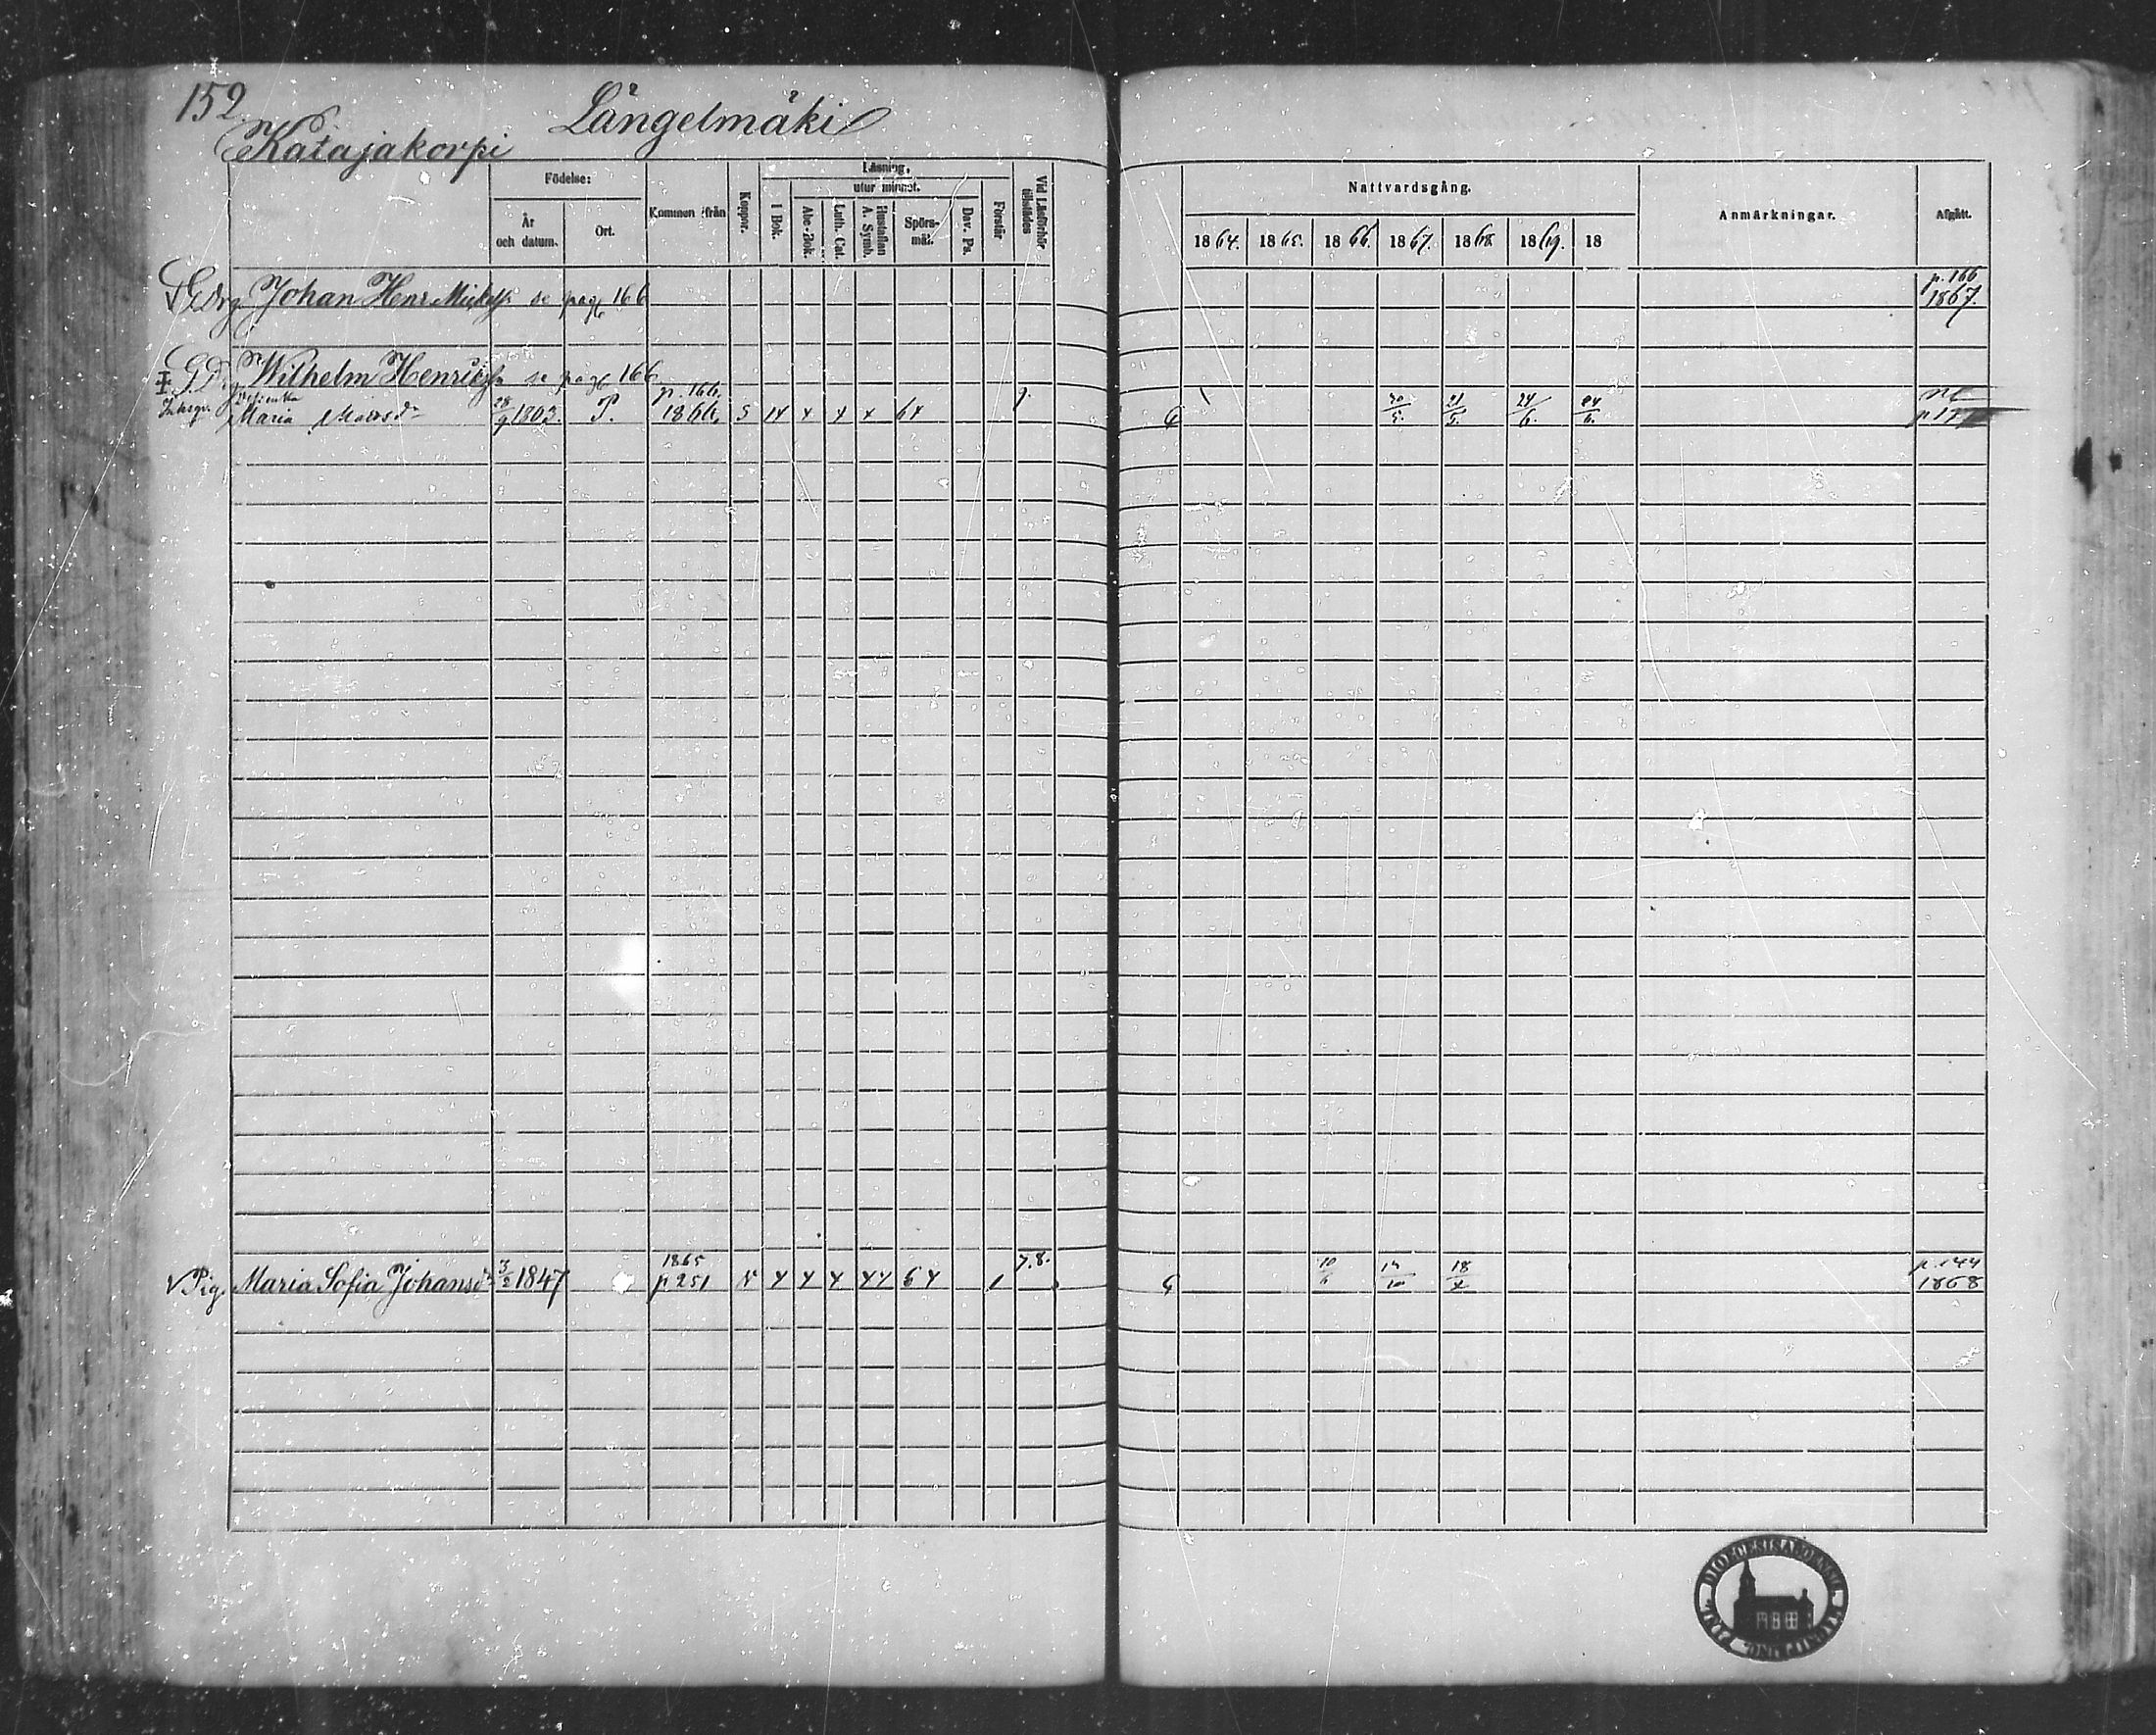 152.
Långelmäki
Katajakorpi
Födelse:
År och datum.
Ort.
Kommen ifrån
Koppor.
Läsning,
utur minnet.
I Bok.
Abc-Bok.
Luth. Cat.
Hustaflan A. Symb.
Spörsmål.
Dav. Ps.
Förstår
Vid Läsförhör tillstädes
Nattvardsgång.
1864. 1865. 1866. 1867. 1868 1869. 18
Anmärkningar.
Afgått.
Johan Henr Mickelss se pag 166 p. 166 1867.
Wilhelm Henrikss se pag 166
Inhogr. Maria 28/9 1803. P. p. 166. 1866. 5 14 x x x 64 9. G 30/5. 21/5. 24/6. 24/6.
v Pig. Maria Sofia Johansdr 3/2 1847 1865 p 251 v x x x xx 6x 1 7.8. G 10/6 18/x p. 144 1868
DIOECESIS ABOENSIS